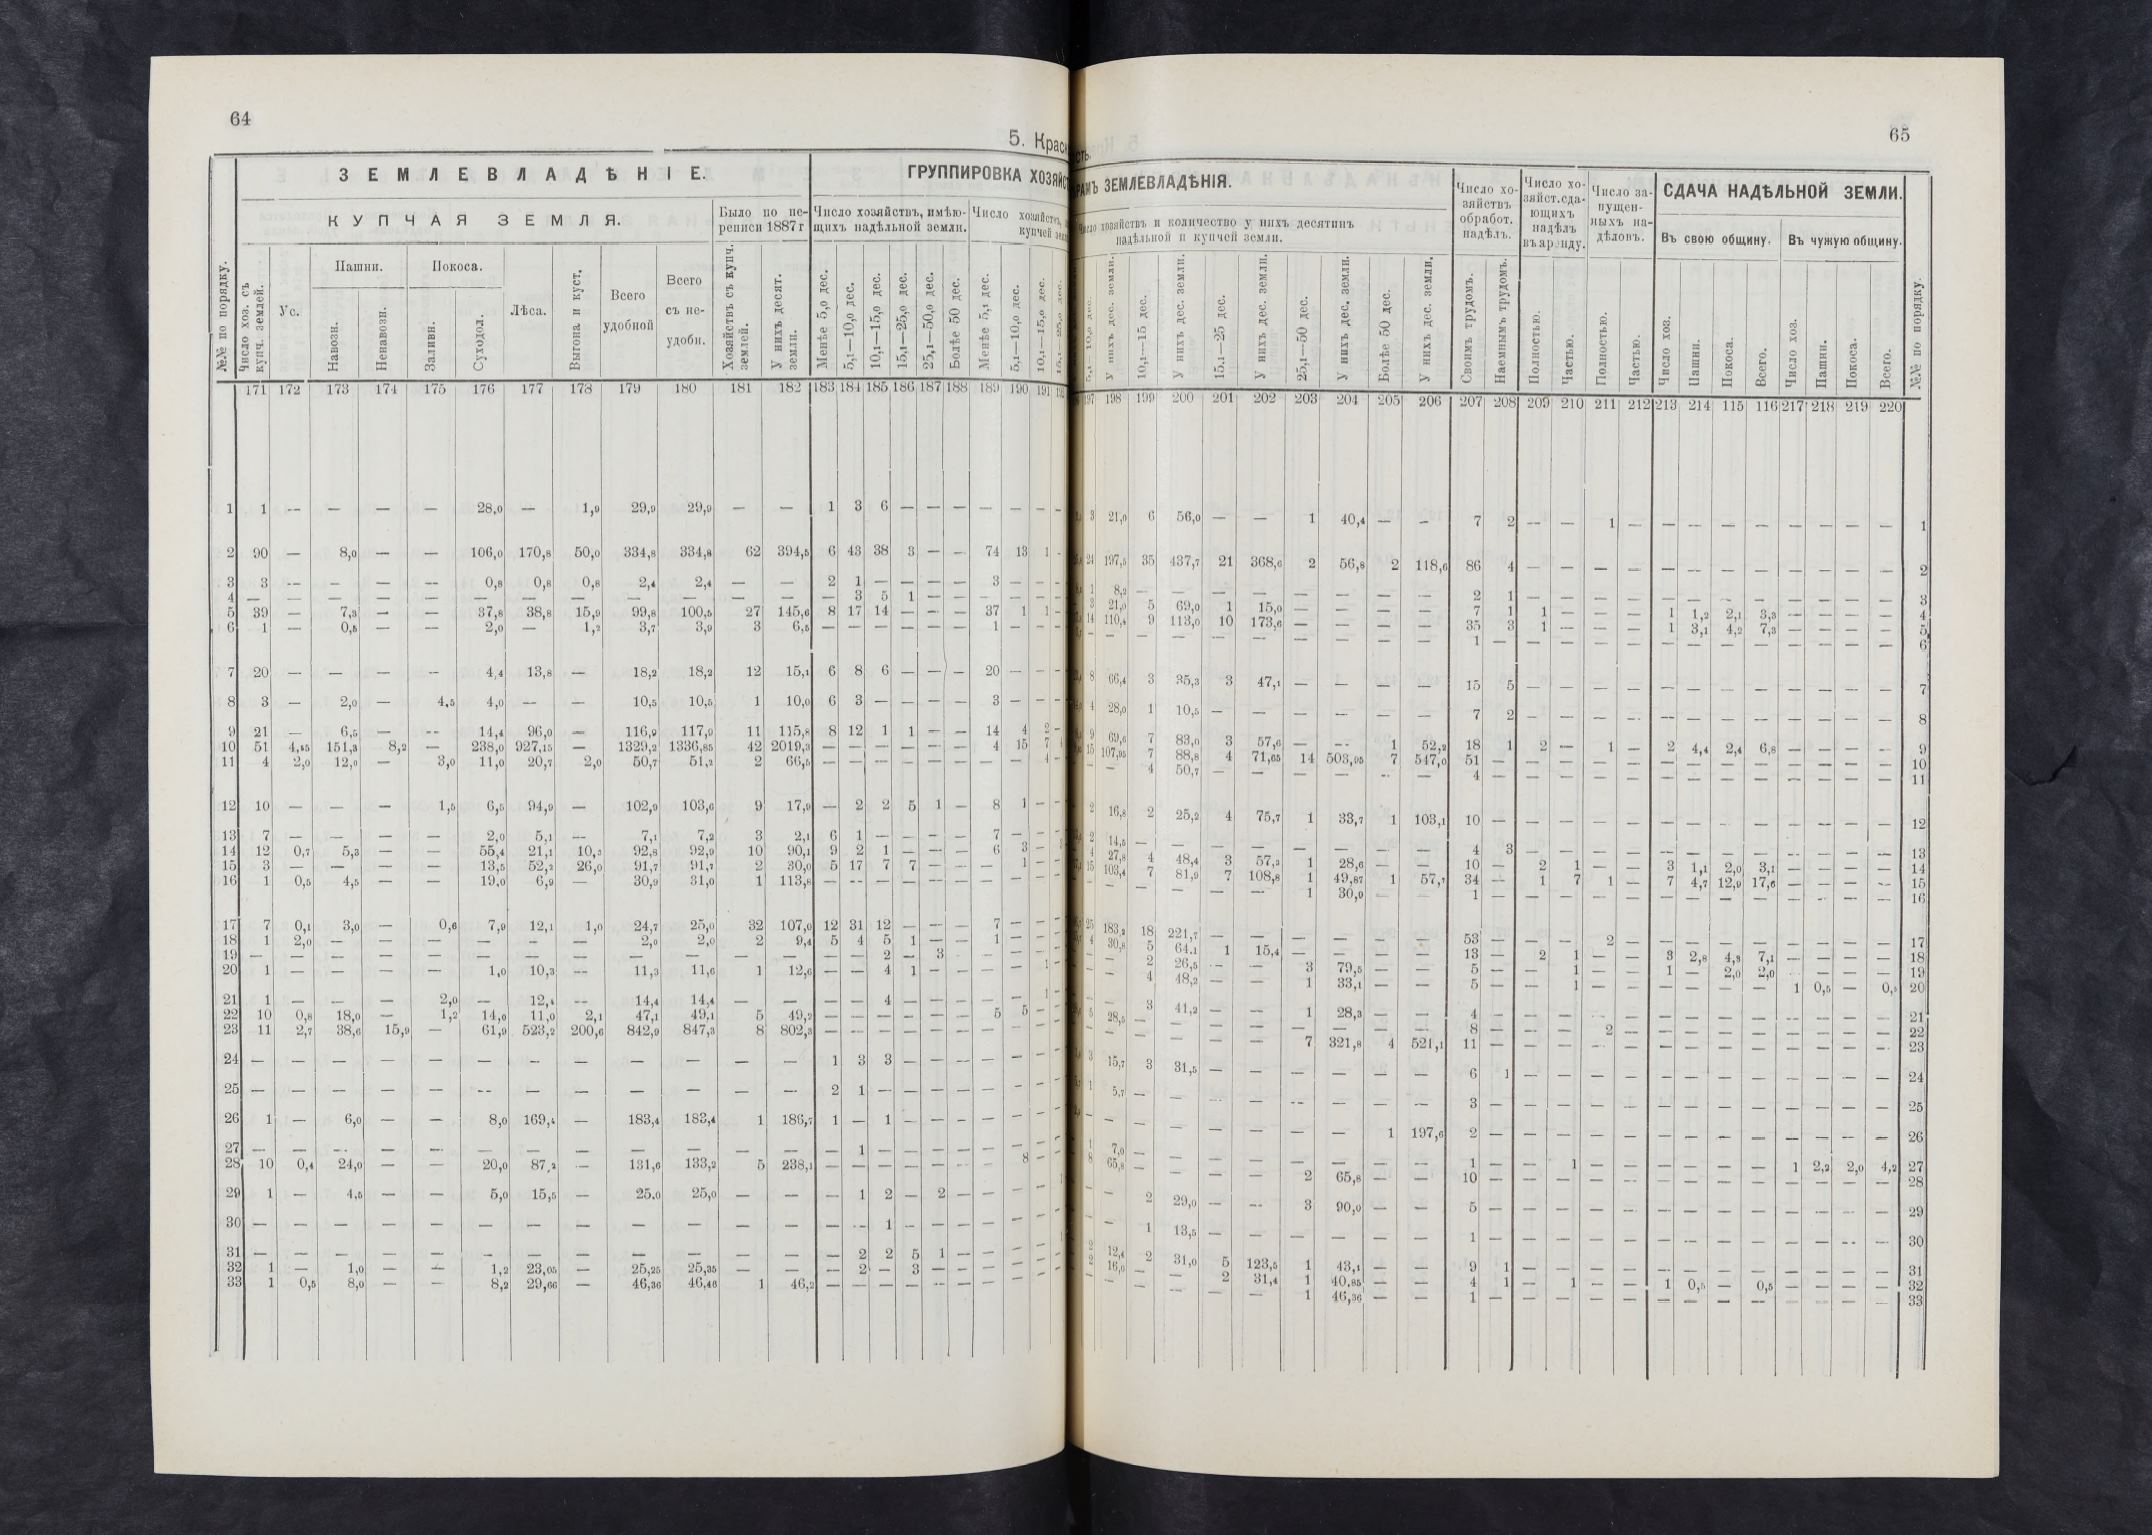 64
5. Крас
ЗЕМЛЕВЛАДѢНІЕ.
ГРУППИРОВКА ХОЗЯЙСТ
КУПЧАЯ ЗЕМЛЯ.
Было по пе-
реписи 1887 г
Число хозяйствъ, имѣю-
щихъ надѣльной земли.
Число хозяйствъ,
купчей
№№ по порядку.
Число хоз. съ купч. землей.
Ус.
Пашни.
Навозн.
Ненавозн.
Покоса.
Заливн.
Суходол.
Лѣса.
Выгона и куст.
Всего удобной
Всего съ не- удобн.
Хозяйствъ съ купч. землей.
У нихъ десят. земли.
Менѣе 5,0 дес.
5,1—10,0 дес.
10,1—15,0 дес.
15,1—25,0 дес.
25,1—50,0 дес.
Болѣе 50 дес.
Менѣе 5,1 дес.
5,1—10,0 дес.
10,1—15,0 дес.
171 172 173 174 175 176 177 178 179 180 181 182 183 184 185 186 187 188 189 190 191
1 1 — — — — 28,0 — 1,9 29,9 29,9 — — 1 3 6 — — — — — —
2 90 — 8,0 — — 106,0 170,8 50,0 334,8 334,8 62 394,5 6 43 38 3 — — 74 13 1
3 3 — — — — 0,8 0,8 0,8 2,4 2,4 — — 2 1 — — — — 3 — —
4 — — — — — — — — — — — — — 3 5 1 — — — — —
5 39 — 7,3 — — 37,8 38,8 15,9 99,8 100,5 27 145,6 8 17 14 — — — 37 1 1
6 1 — 0,5 — — 2,0 — 1,2 3,7 3,9 3 6,5 — — — — — — 1 — —
7 20 — — — — 4,4 13,8 — 18,2 18,2 12 15,1 6 8 6 — — — 20 — —
8 3 — 2,0 — 4,5 4,0 — — 10,5 10,5 1 10,0 6 3 — — — — 3 — —
9 21 — 6,5 — — 14,4 96,0 — 116,9 117,9 11 115,8 8 12 1 1 — — 14 4 2
10 51 4,45 151,3 8,2 — 238,0 927,15 — 1329,2 1336,85 42 2019,3 4 15 7
11 4 2,0 12,0 — 3,0 11,0 20,7 2,0 50,7 51,2 2 66,5 — — — — — — — — 4
12 10 — — — 1,5 6,5 94,9 — 102,9 103,6 9 17,9 — 2 2 5 1 — 8 1 —
13 7 — — — — 2,0 5,1 — 7,1 7,2 3 2,1 6 1 — — — — 7 — —
14 12 0,7 5,3 — — 55,4 21,1 10,3 92,8 92,9 10 90,1 9 2 1 — — — 6 3 —
15 3 — — — — 13,5 52,2 26,0 91,7 91,7 2 30,0 5 17 7 7 — — — 1 —
16 1 0,5 4,5 — — 19,0 6,9 — 30,9 31,0 1 113,8 — — — — — — — — —
17 7 0,1 3,0 — 0,6 7,9 12,1 1,0 24,7 25,0 32 107,0 12 31 12 — — — 7 — —
18 1 2,0 — — — — — — 2,0 2,0 2 9,4 5 4 5 1 — — 1 — —
19 — — — — — — — — — — — — — — 2 — 3 — — — —
20 1 — — — — 1,0 10,3 — 11,3 11,6 1 12,6 — — 4 1 — — — — 1
21 1 — — — 2,0 — 12,4 — 14,4 14,4 — — — — 4 — — — — — 1
22 10 0,8 18,0 — 1,2 14,0 11,0 2,1 47,1 49,1 5 49,2 — — — — — — 5 5 —
23 11 2,7 38,6 15,9 — 61,9 523,2 200,6 842,9 847,3 8 802,3 — — — — — — — — —
24 — — — — — — — — — — — — 1 3 3 — — — — — —
25 — — — — — — — — — — — — 2 1 — — — — — — —
26 1 — 6,0 — — 8,0 169,4 — 183,4 183,4 1 186,7 1 — 1 — — — — — —
27 — — — — — — — — — — — — — 1 — — — — — — —
28 10 0,4 24,0 — — 20,0 87,2 — 131,6 133,2 5 238,1 — — — — — — — 8 —
29 1 — 4,5 — — 5,0 15,5 — 25,0 25,0 — — — 1 2 — 2 — — — —
30 — — — — — — — — — — — — — — 1 — — — — — —
31 — — — — — — — — — — — — — 2 2 5 1 — — — —
32 1 — 1,0 — — 1,2 23,05 — 25,25 25,35 — — — 2 — 3 — — — — —
33 1 0,5 8,0 — — 8,2 29,66 — 46,36 46,46 1 46,2 — — — — — — — — —
65
сть.
РАМЪ ЗЕМЛЕВЛАДѢНІЯ.
хозяйствъ и количество у нихъ десятинъ
надѣльной и купчей земли.
Число хо-
зяйствъ
обработ.
надѣлъ.
Число хо-
зяйст. сда-
ющихъ
надѣлъ
въ аренду.
Число за-
пущен-
ныхъ на-
дѣловъ.
СДАЧА НАДѢЛЬНОЙ ЗЕМЛИ.
Въ свою общину.
Въ чужую общину.
У нихъ дес. земли.
10,1—15 дес.
У нихъ дес. земли.
15,1—25 дес.
У нихъ дес. земли.
25,1—50 дес.
У нихъ дес. земли.
Болѣе 50 дес.
У нихъ дес. земли.
Своимъ трудомъ.
Наемнымъ трудомъ.
Полностью.
Частью.
Полностью.
Частью.
Число хоз.
Пашни.
Покоса.
Всего.
Число хоз.
Пашни.
Покоса.
Всего.
№№ по порядку.
197 198 199 200 201 202 203 204 205 206 207 208 209 210 211 212 213 214 115 116 217 218 219 220
3 21,0 6 56,0 — — 1 40,4 — — 7 2 — — 1 — — — — — — — — — 1
24 197,5 35 437,7 21 368,6 2 56,8 2 118,6 86 4 — — — — — — — — — — — — 2
1 8,2 — — — — — — — — 2 1 — — — — — — — — — — — — 3
3 21,0 5 69,0 1 15,0 — — — — 7 1 1 — — — 1 1,2 2,1 3,3 — — — — 4
14 110,4 9 113,0 10 173,6 — — — — 35 3 1 — — — 1 3,1 4,2 7,3 — — — — 5
— — — — — — — — — — 1 — — — — — — — — — — — — — 6
8 66,4 3 35,3 3 47,1 — — — — 15 5 — — — — — — — — — — — — 7
4 28,0 1 10,5 — — — — — — 7 2 — — — — — — — — — — — — 8
9 69,6 7 83,0 3 57,6 — — 1 52,2 18 1 2 — 1 — 2 4,4 2,4 6,8 — — — — 9
15 107,95 7 88,8 4 71,65 14 503,95 7 547,0 51 — — — — — — — — — — — — — 10
— — 4 50,7 — — — — — — 4 — — — — — — — — — — — — — 11
2 16,8 2 25,2 4 75,7 1 33,7 1 103,1 10 — — — — — — — — — — — — — 12
2 14,5 — — — — — — — — 4 3 — — — — — — — — — — — — 13
4 27,8 4 48,4 3 57,2 1 28,6 — — 10 — 2 1 — — 3 1,1 2,0 3,1 — — — — 14
15 103,4 7 81,9 7 108,8 1 49,87 1 57,7 34 — 1 7 1 — 7 4,7 12,9 17,6 — — — — 15
— — — — — — 1 30,9 — — 1 — — — — — — — — — — — — — 16
25 183,2 18 221,7 — — — — — — 53 — — — 2 — — — — — — — — — 17
4 30,8 5 64,1 1 15,4 — — — — 13 — 2 1 — — 3 2,8 4,3 7,1 — — — — 18
— — 2 26,5 — — 3 79,5 — — 5 — — 1 — — 1 — 2,0 2,0 — — — — 19
— — 4 48,2 — — 1 33,1 — — 5 — — 1 — — — — — — 1 0,5 — 0,5 20
— — 3 41,2 — — 1 28,3 — — 4 — — — — — — — — — — — — — 21
5 28,5 — — — — — — — — 8 — — — 2 — — — — — — — — — 22
— — — — — — 7 321,8 4 521,1 11 — — — — — — — — — — — — — 23
3 15,7 3 31,5 — — — — — — 6 1 — — — — — — — — — — — — 24
1 5,7 — — — — — — — — 3 — — — — — — — — — — — — — 25
— — — — — — — — 1 197,6 2 — — — — — — — — — — — — — 26
1 7,0 — — — — — — — — 1 — — 1 — — — — — — 1 2,2 2,0 4,2 27
8 65,8 — — — — 2 65,8 — — 10 — — — — — — — — — — — — — 28
— — 2 29,0 — — 3 90,0 — — 5 — — — — — — — — — — — — — 29
— — 1 13,5 — — — — — — 1 — — — — — — — — — — — — — 30
2 12,4 2 31,0 5 123,5 1 43,1 — — 9 1 — — — — — — — — — — — — 31
2 16,0 — — 2 31,4 1 40,85 — — 4 1 — 1 — — 1 0,5 — 0,5 — — — — 32
— — — — — — 1 46,36 — — 1 — — — — — — — — — — — — — 33